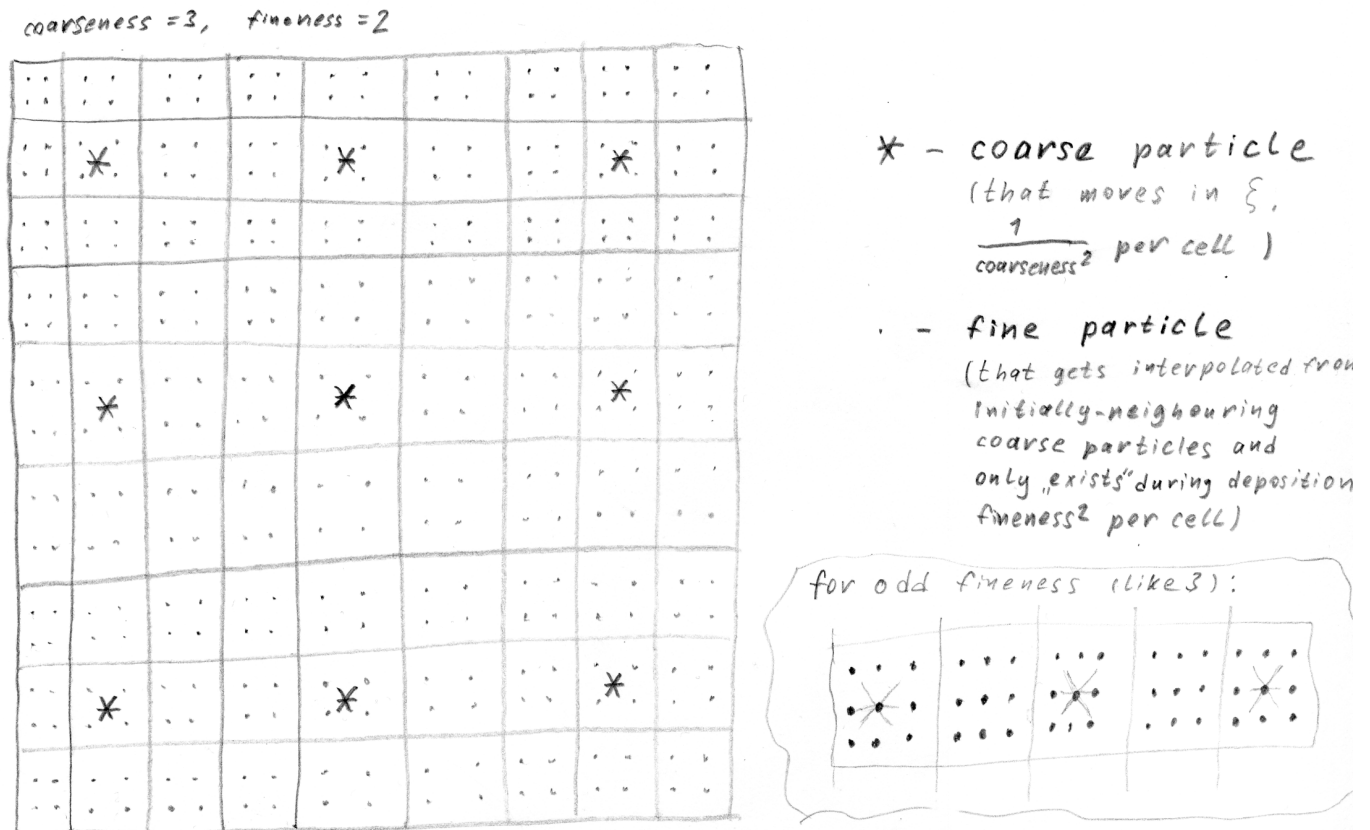 coarseness =3, fineness =2
* - coarse particle
(that moves in ξ,
1
coarseness²
per cell )
. - fine particle
(that gets interpolated from
initially-neighouring
coarse particles and
only „exists" during deposition
fineness² per cell)
for odd fineness (like 3):